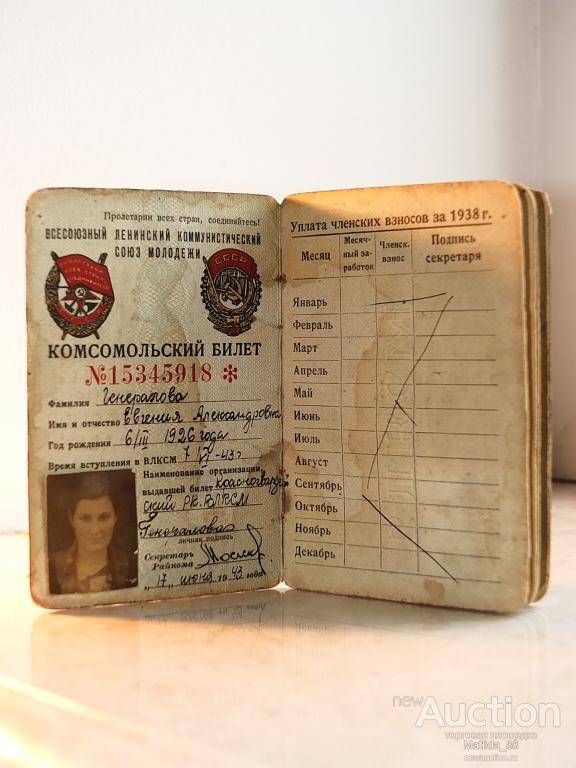 Пролетарии всех стран, соединяйтесь!
ВСЕСОЮЗНЫЙ ЛЕНИНСКИЙ КОММУНИСТИЧЕСКИЙ
СОЮЗ МОЛОДЕЖИ
СССР
КОМСОМОЛЬСКИЙ БИЛЕТ
№15345918 *
Фамилия Генералова
Имя и отчество Евгения Александровна
Год рождения 6/III 1926 года
Время вступления в ВЛКСМ 7/VI-43г
Наименование организации,
выдавшей билет Красногвардей
ский РК ВЛКСМ
Генералова
личная подпись
Секретарь
Райкома
"17" июня 1943 года
Уплата членских взносов за 1938 г.
Месяц Месяч-ный за-работок Членск. взнос Подпись секретаря
Январь
Февраль
Март
Апрель
Май
Июнь
Июль
Август
Сентябрь
Октябрь
Ноябрь
Декабрь
newAuction
торговая площадка
Matilda_88
newauction.ru